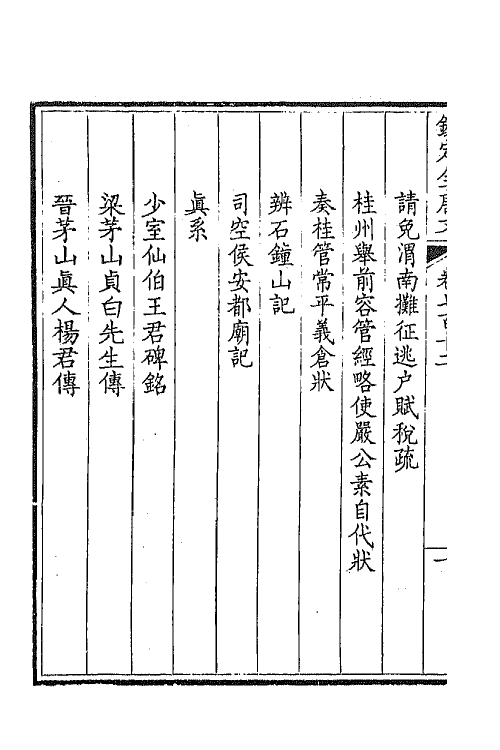 請免渭南攤征逃户賦稅疏
桂州舉前容管經略使嚴公素自代狀
奏桂管常平義倉狀
辨石鐘山記
司空侯安都廟記
眞系
少室仙伯王君碑銘
梁茅山貞白先生傳
晉茅山眞人楊君傳